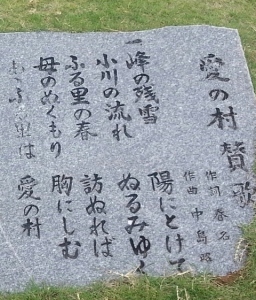 愛の村賛歌
作詞 春名
作曲 中島昭
一
峰の残雪 陽にとけて
小川の流れ ぬるみゆく
ふる里の春 訪ぬれば
母のぬくもり 胸にしむ
里は 愛の村